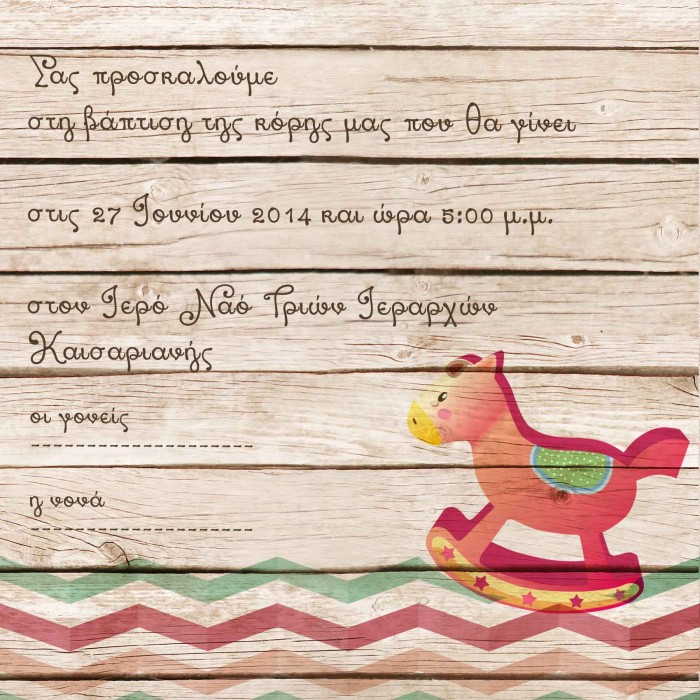 Σας προσκαλούμε
στη βάπτιση της κόρης μας που θα γίνει
στις 27 Ιουνίου 2014 και ώρα 5:00 μ.μ.
στον Ιερό Ναό Τριών Ιεραρχών
Καισαριανής
οι γονείς
η νονά